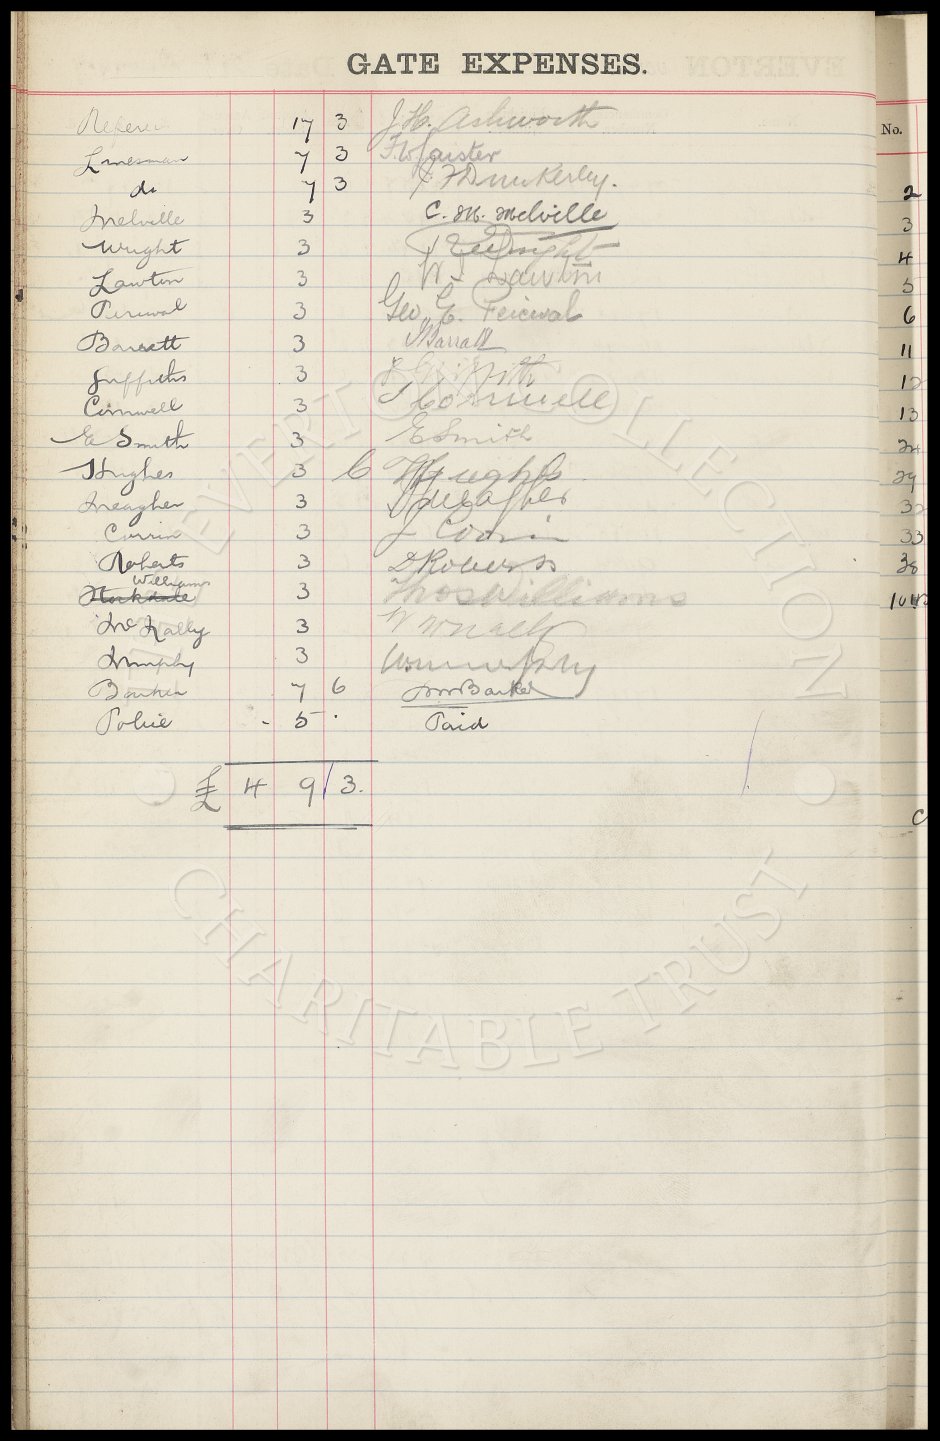 GATE EXPENSES.
Referee 17 3 J. H. Ashworth
Linesman 7 3
do 7 3
Melville 3 C. M. Melville
Wright 3
Lawton 3 W J Lawton
Percival 3 Geo. E. Percival
Barratt 3 Barratt
Griffiths 3
Cornwell 3 Cornwell
E Smith 3 E Smith
Hughes 3 C Hughes
Meagher 3 Meagher
Corrin 3 J Corrin
Roberts 3 D Roberts
Williams
Stockdale 3 Thos Williams
McNally 3 W McNally
Murphy 3
Barker 7 6 Barker
Police - 5 . Paid
£ 4 9 / 3.
No.
2
3
4
5
6
11
12
13
24
29
32
33
38
EVERTON COLLECTION
CHARITABLE TRUST